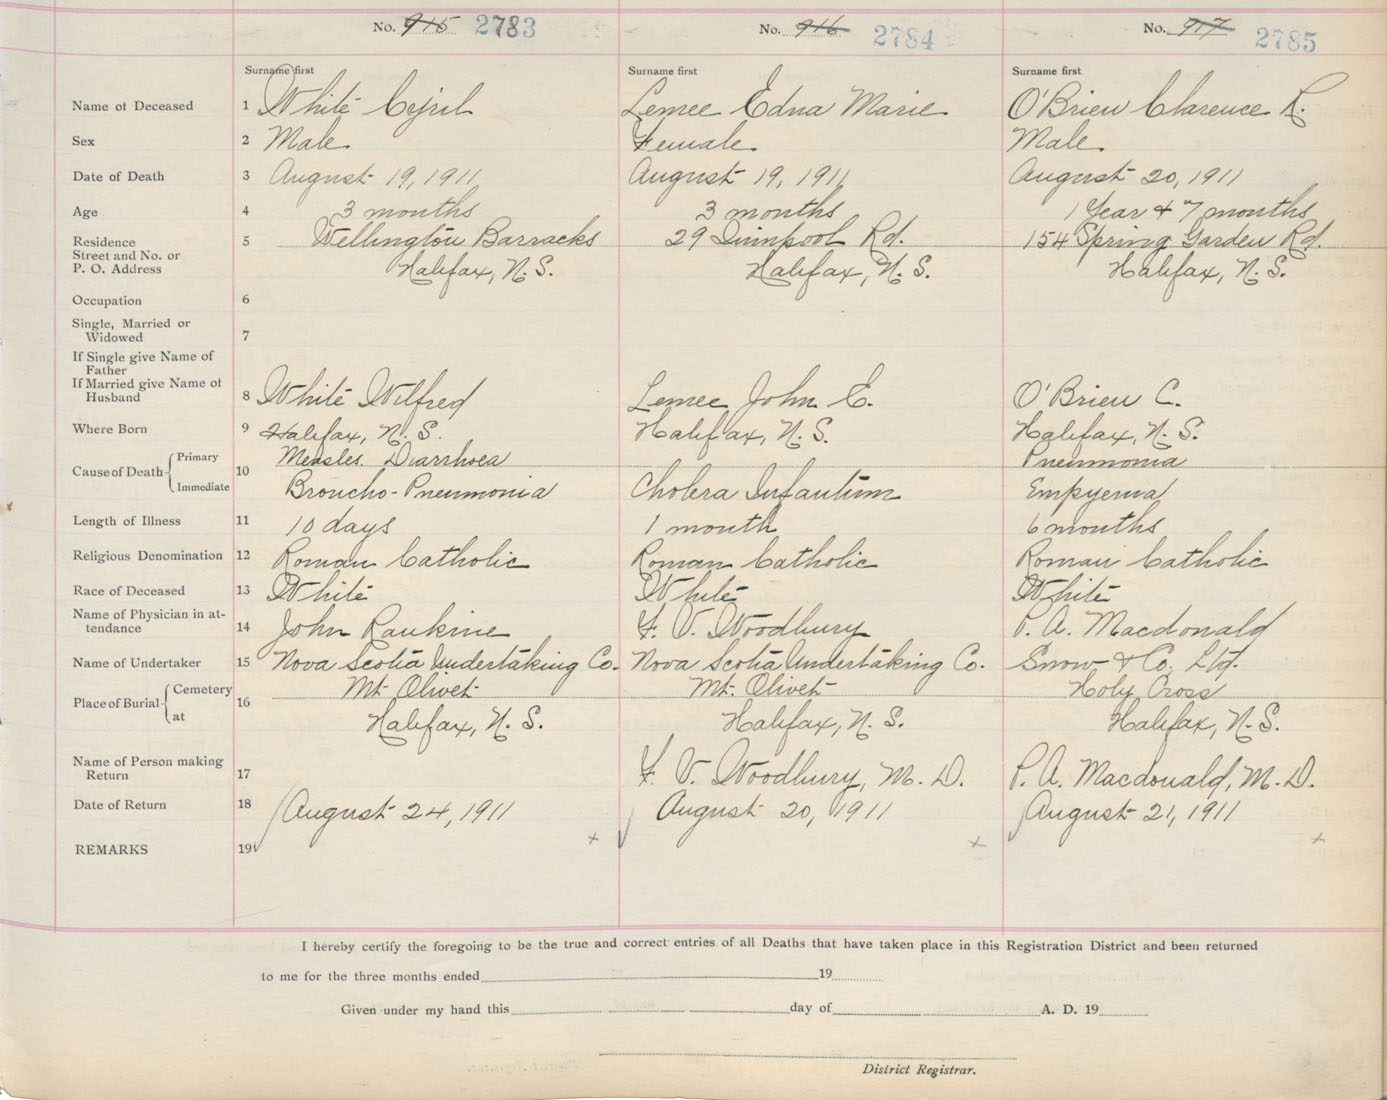 No. 915 2783 No. 916 2784 No. 917 2785
Surname first Surname first Surname first
Name of Deceased 1 White Cyril Lemee Edna Marie O'Brien Clarence R.
Sex 2 Male Female Male
Date of Death 3 August 19, 1911 August 19, 1911 August 20, 1911
Age 4 3 months 3 months 1 Year & 7 months
Residence 5 Wellington Barracks 29 Quinpool Rd. 154 Spring Garden Rd.
Street and No. or
P. O. Address Halifax, N. S. Halifax, N. S. Halifax, N. S.
Occupation 6
Single, Married or
Widowed 7
If Single give Name of
Father
If Married give Name of
Husband 8 White Wilfred Lemee John E. O'Brien C.
Where Born 9 Halifax, N. S. Halifax, N. S. Halifax, N. S.
Cause of Death Primary 10 Measles. Diarrhoea Pneumonia
Immediate Broncho-Pneumonia Cholera Infantum Empyema
Length of Illness 11 10 days 1 month 6 months
Religious Denomination 12 Roman Catholic Roman Catholic Roman Catholic
Race of Deceased 13 White White White
Name of Physician in at-
tendance 14 John Rankine F. V. Woodbury P. A. Macdonald
Name of Undertaker 15 Nova Scotia Undertaking Co. Nova Scotia Undertaking Co. Snow & Co. Ltd.
Place of Burial Cemetery 16 Mt. Olivet Mt. Olivet Holy Cross
at Halifax, N. S. Halifax, N. S. Halifax, N. S.
Name of Person making
Return 17 F. V. Woodbury, M. D. P. A. Macdonald, M. D.
Date of Return 18 August 24, 1911 August 20, 1911 August 21, 1911
REMARKS 19
I hereby certify the foregoing to be the true and correct entries of all Deaths that have taken place in this Registration District and been returned
to me for the three months ended 19
Given under my hand this day of A. D. 19
District Registrar.